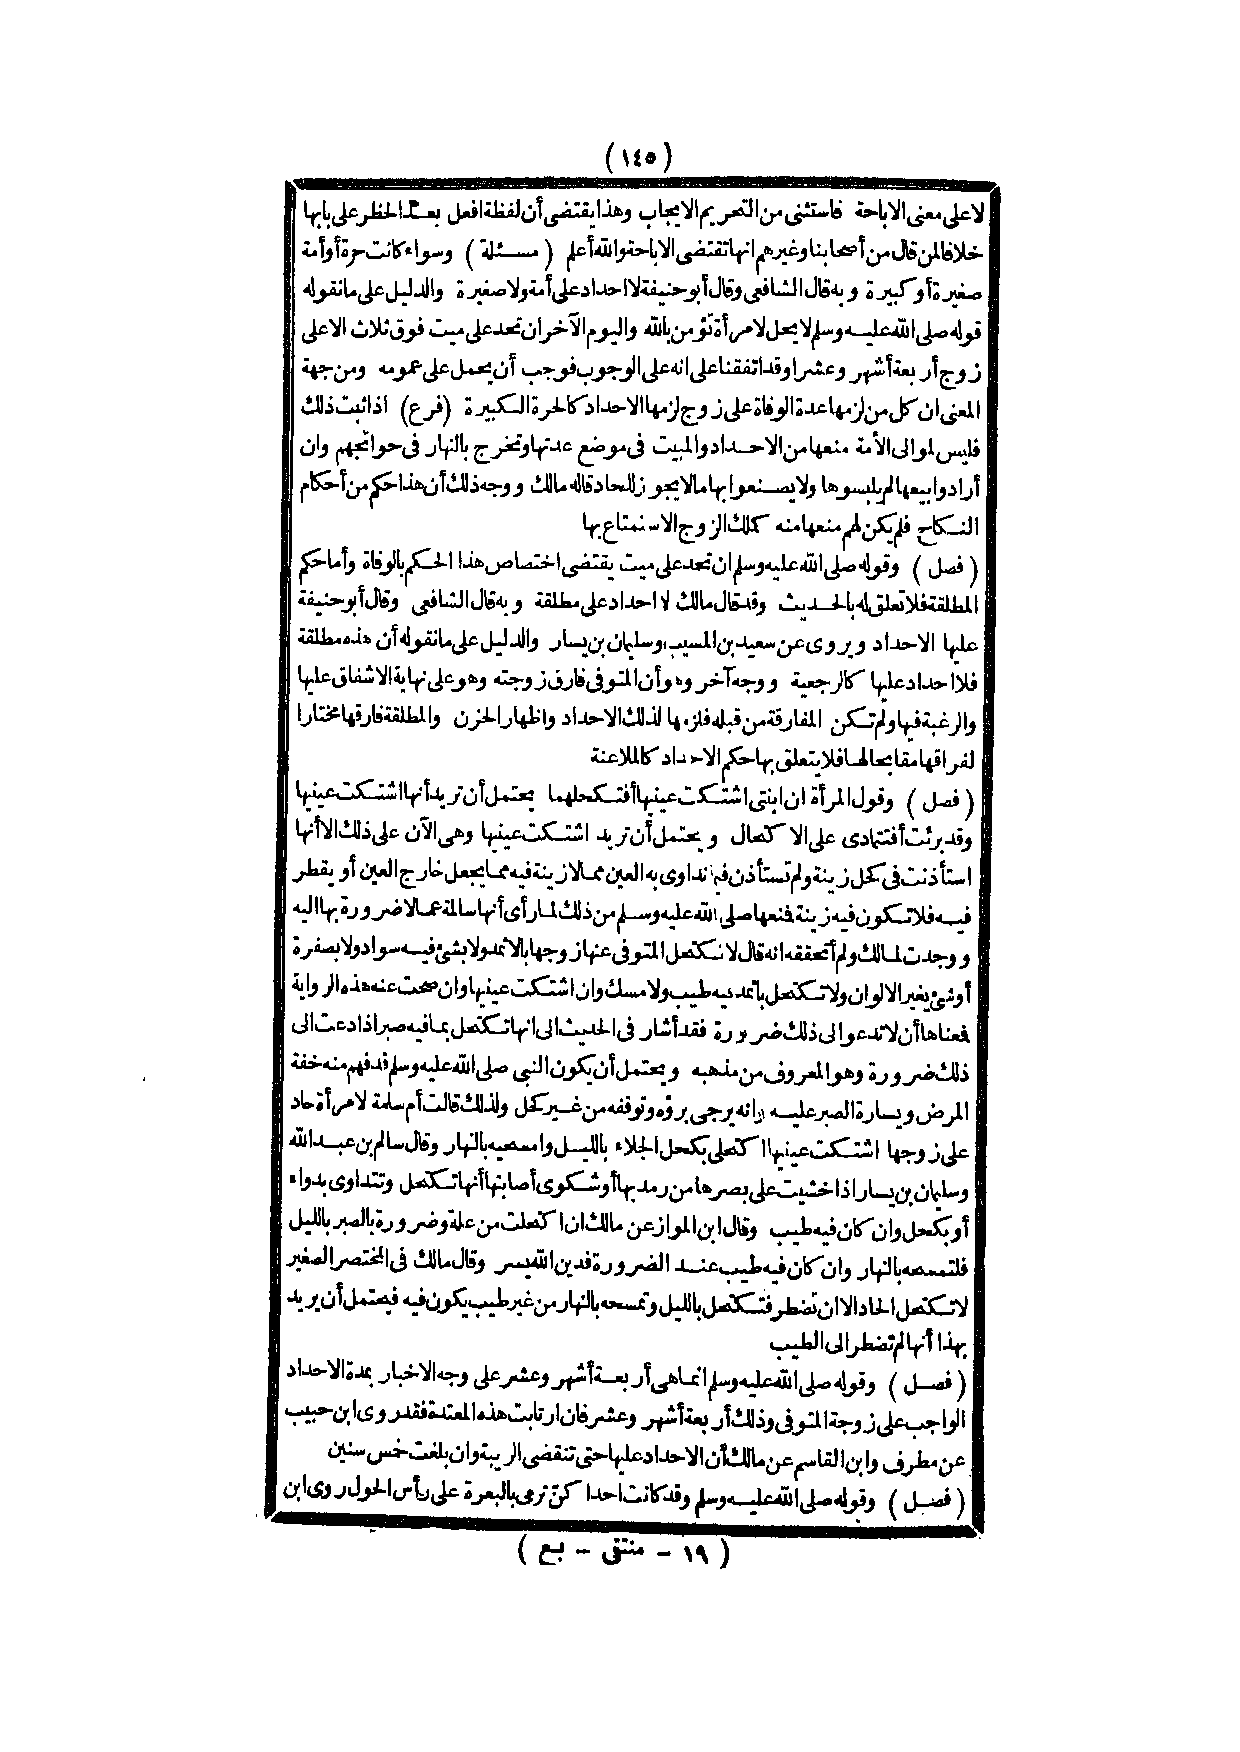 (١٤٥)
لا على معنى الاباحة فاستثنى من التحريم الايجاب وهذا يقتضى أن لفظة افعل بعد الحظر على بابها
خلافا لمن قال من أصحابنا وغيرهم انها تقتضى الاباحة والله أعلم (مسئلة) وسواء كانت حرة أو أمة
صغيرة أو كبيرة وبه قال الشافعى وقال أبو حنيفة لا احداد على أمة ولا صغيرة والدليل على ما نقوله
قوله صلى الله عليه وسلم لا يحل لامرأة تؤمن بالله واليوم الآخر ان تحد على ميت فوق ثلاث الا على
زوج أربعة أشهر وعشرا وقد اتفقنا على انه على الوجوب فوجب أن يحمل على عمومه ومن جهة
المعنى ان كل من لزمها عدة الوفاة على زوج لزمها الاحداد كالحرة الكبيرة (فرع) اذا ثبت ذلك
فليس لموالى الأمة منعها من الاحداد والمبيت فى موضع عدتها وتخرج بالنهار فى حوائجهم وان
أرادوا بيعها لم يلبسوها ولا يصنعوا بها ما لا يجوز للحاد قاله مالك ووجه ذلك أن هذا حكم من أحكام
النكاح فلم يكن لهم منعها منه كملك الزوج الاستمتاع بها
(فصل) وقوله صلى الله عليه وسلم ان تحد على ميت يقتضى اختصاص هذا الحكم بالوفاة وأما حكم
المطلقة فلا تعلق له بالحديث وقد قال مالك لا احداد على مطلقة وبه قال الشافعى وقال أبو حنيفة
عليها الاحداد ويروى عن سعيد بن المسيب وسليمان بن يسار والدليل على ما نقوله أن هذه مطلقة
فلا احداد عليها كالرجعية ووجه آخر وهو أن المتوفى فارق زوجته وهو على نهاية الاشفاق عليها
والرغبة فيها ولم تكن المفارقة من قبله فلزمها لذلك الاحداد واظهار الحزن والمطلقة فارقها مختارا
لفراقها مقابحا لها فلا يتعلق بها حكم الاحداد كالملاعنة
(فصل) وقول المرأة ان ابنتى اشتكت عينيها أفتكحلهما يحتمل أن تريد أنها اشتكت عينيها
وقد برئت أفتتمادى على الاكتحال ويحتمل أن تريد اشتكت عينيها وهى الآن على ذلك الا أنها
استأذنت فى كحل زينة ولم تستأذن فيما تداوى به العين مما لا زينة فيه مما يجعل خارج العين أو يقطر
فيه فلا تكون فيه زينة فمنعها صلى الله عليه وسلم من ذلك لما رأى أنها سالمة عما لا ضرورة بها اليه
ووجدت لمالك ولم أتحققه انه قال لا تكتحل المتوفى عنها زوجها بالاثمد ولا بشئ فيه سواد ولا بصفرة
أو شئ يغير الالوان ولا تكتحل باثمد فيه طيب ولا مسك وان اشتكت عينيها وان صحت عنه هذه الرواية
فمعناها أن لا تدعو الى ذلك ضرورة فقد أشار فى الحديث الى انها تكتحل بما فيه صبر اذا دعت الى
ذلك ضرورة وهو المعروف من مذهبه ويحتمل أن يكون النبى صلى الله عليه وسلم قد فهم منه خفة
المرض ويسارة الصبر عليه وانه يرجى برؤه وتوقفه من غير كحل ولذلك قالت أم سلمة لامرأة حاد
على زوجها اشتكت عينيها اكتحلى بكحل الجلاء بالليل وامسحيه بالنهار وقال سالم بن عبد الله
وسليمان بن يسار اذا خشيت على بصرها من رمد بها أو شكوى أصابتها أنها تكتحل وتتداوى بدواء
أو بكحل وان كان فيه طيب وقال ابن المواز عن مالك ان اكتحلت من علة وضرورة بالصبر بالليل
فلتمسحه بالنهار وان كان فيه طيب عند الضرورة فدين الله يسر وقال مالك فى المختصر الصغير
لا تكتحل الحاد الا ان تضطر فتكتحل بالليل وتمسحه بالنهار من غير طيب يكون فيه فيحتمل أن يريد
بهذا أنها لم تضطر الى الطيب
(فصل) وقوله صلى الله عليه وسلم انما هى أربعة أشهر وعشر على وجه الاخبار بمدة الاحداد
الواجب على زوجة المتوفى وذلك أربعة أشهر وعشر فان ارتابت هذه المعتدة فقد روى ابن حبيب
عن مطرف وابن القاسم عن مالك أن الاحداد عليها حتى تنقضى الريبة وان بلغت خمس سنين
(فصل) وقوله صلى الله عليه وسلم وقد كانت احدا كن ترمى بالبعرة على رأس الحول روى ابن
(١٩ - منتقى - بع)